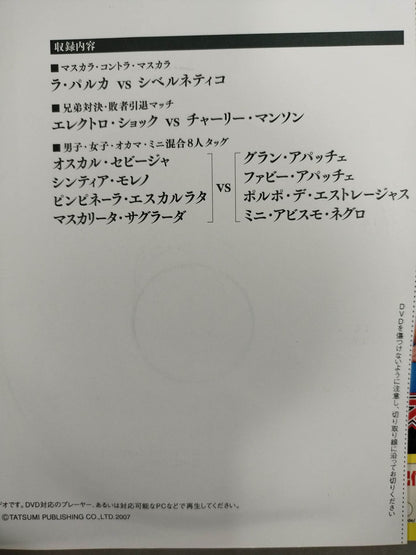 収録内容
■マスカラ・コントラ・マスカラ
ラ・パルカ vs シベルネティコ
■兄弟対決・敗者引退マッチ
エレクトロ・ショック vs チャーリー・マンソン
■男子・女子・オカマ・ミニ混合8人タッグ
オスカル・セビージャ
シンティア・モレノ
ピンピネーラ・エスカルラタ
マスカリータ・サグラーダ
vs
グラン・アパッチェ
ファビー・アパッチェ
ポルポ・デ・エストレージャス
ミニ・アビスモ・ネグロ
DVDを傷つけないように注意し、切り取り線に沿ってお切りください
デオです。DVD対応のプレーヤー、あるいは対応可能なPCなどで再生してください。
©TATSUMI PUBLISHING CO.,LTD. 2007